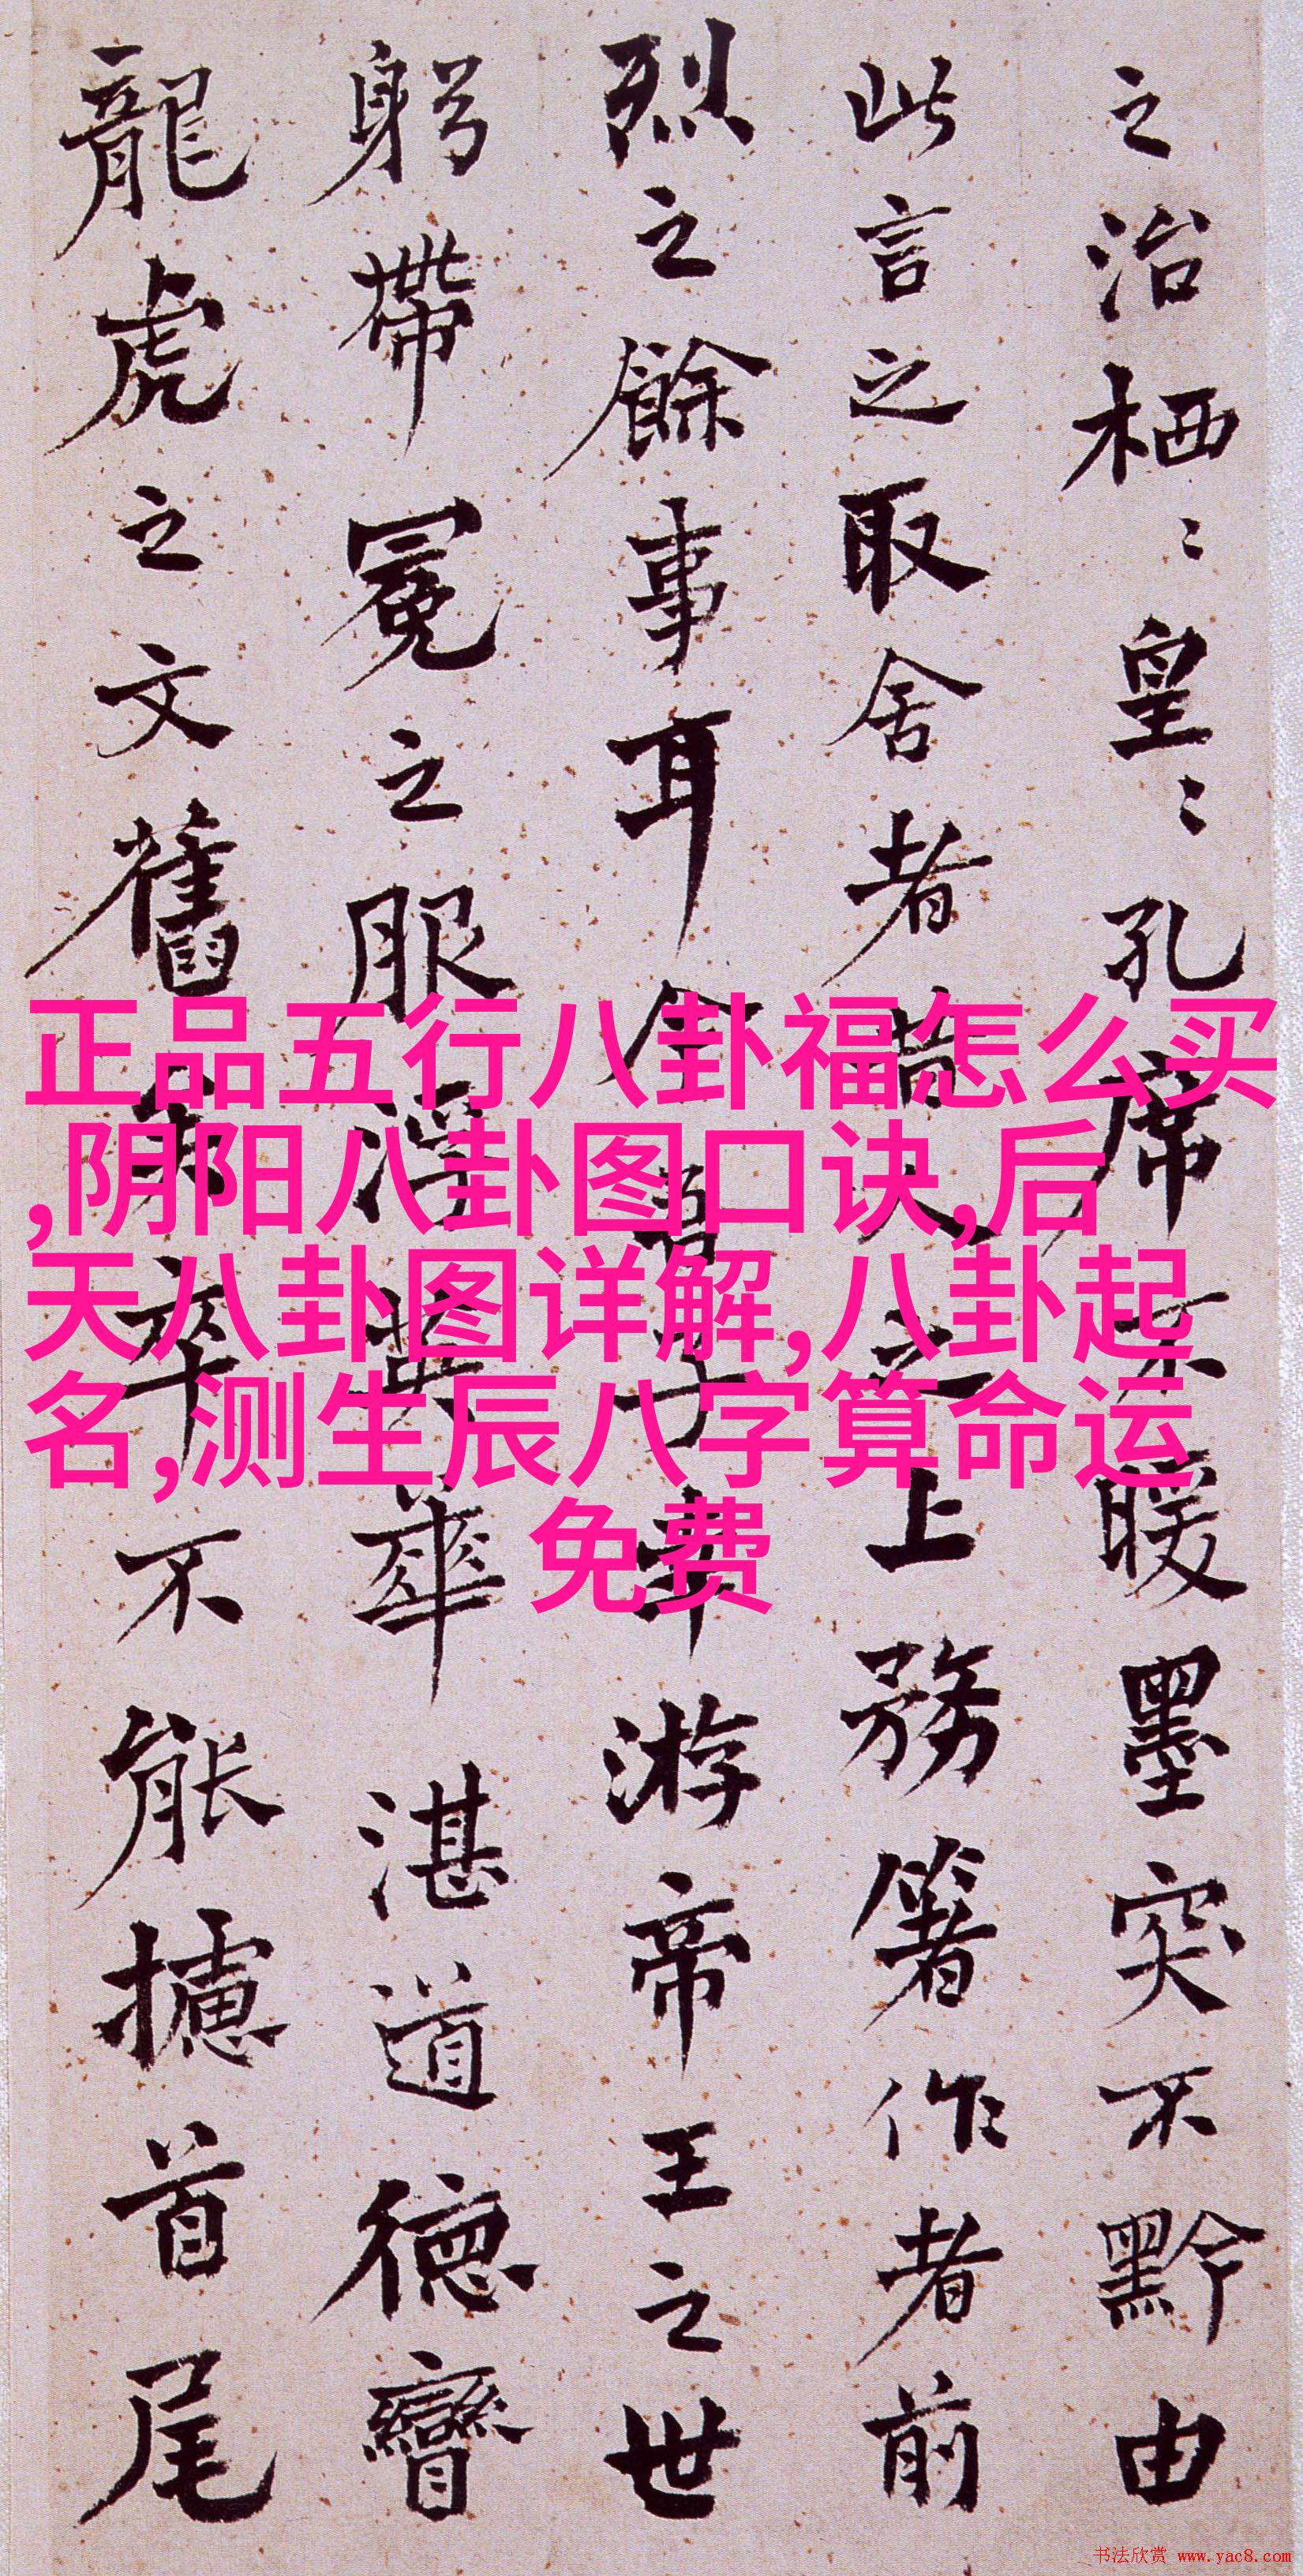 之治栖〻皇〻孔席不暖墨突不黔由
此言之取舍者昔人之上務箸作者前
烈之餘事耳今吾子幸游帝王之世
躬帶冕之服浮英華湛道德矕
龍虎之文舊矣卒不能攄首尾
正品五行八卦福怎么买
,阴阳八卦图口诀,后
天八卦图详解,八卦起
名,测生辰八字算命运
免费
书法欣赏 www.yac8.com